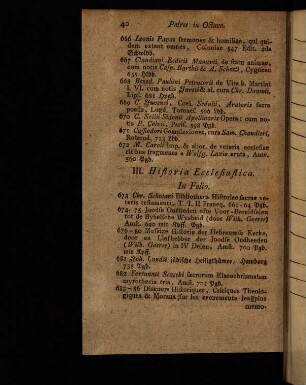 40 Patres in Octavo.
666 Leonis Papae sermones & homiliae, qui quidem extant omnes, Coloniae 547 Edit. alba
Schwsbd.
667 Claudiani Ecdicii Mamerti, de statu animae,
cum notis Casp. Barthii & A. Schotti, Cygneae
655 Hfbd.
668 Bened. Paulini Petrocorii de Vita b. Martini
l. VI. cum notis Jureti & al. cura Chr. Daumii,
Lips. 681
669 C. Juvenci, Coel. Sedulii, Aratoris sacra
poesis, Lugd. Tornaes. 566
670 C. Sollii Sidonii Apollinaris Opera: cum notis
P. Colvii, Paris. 598 Pgb.
671 Cassiodori Complexiones, cura Sam. Chandleri,
Roterod. 723
672 M. Caroli Imp. & alior. de veteris ecclesiae
ritibus fragmenta a Wolfg. Lazio eruta, Antv.
560 Pgb.
III. Historia Ecclesiastica.
In Folio.
673 Chr. Schotani Bibliotheca Historiae sacrae veteris testamenti, T. I. II Franeq. 661-64 Pgb.
674-75 Joodse Oudheden ofte Voor-Bereidselen
tot de Bybelsche Wysheid (door Wilh. Goeree)
Amst. 690 mit Kpff. Pgb.
676-80 Mosaize Historie der Hebreeuwse Kerke,
door en Liefhebber der Joodse Oudheeden
(Wilh. Goeree) in IV Delen, Amst. 700 Pgb.
mit Kpff.
681 Joh. Lundii jüdische Heiligthümer, Hamburg
738 Pgb.
682 Fortunati Scacchi sacrorum Elaeochrismaton
myrothecia tria, Amst. 701 Pgb.
683-86 Discours Historiques, Critiques Theologiques & Moraux sur les evenemens les plus
memo-